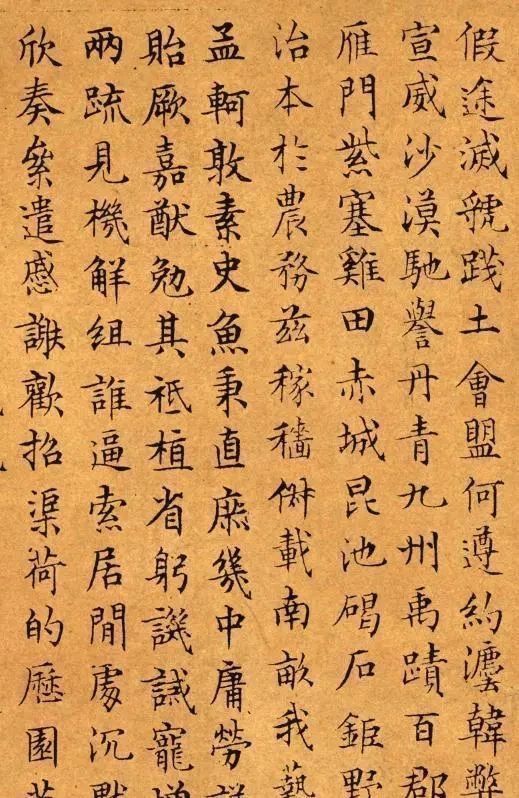 假途滅虢踐土會盟何遵約瀍韓弊
宣威沙漠馳譽丹青九州禹蹟百郡
雁門紫塞雞田赤城昆池碣石鉅野
治本於農務茲稼穡俶載南畝我藝
孟軻敦素史魚秉直庶幾中庸勞謙
貽厥嘉猷勉其祗植省躬譏誡寵增
兩疏見機解組誰逼索居閒處沉默
欣奏絫遣慼謝歡招渠荷的歷園莽